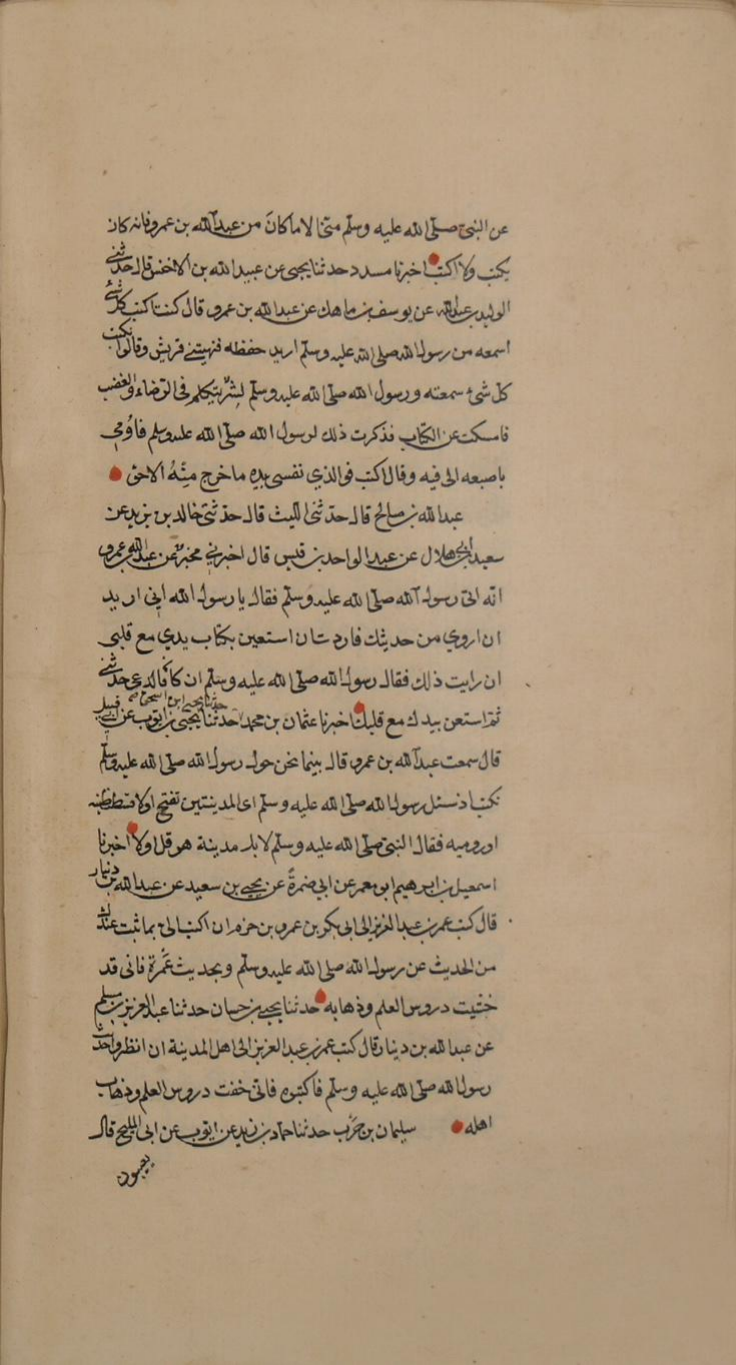 عن النبي صلى الله عليه وسلم مني الا ما كان من عبد الله بن عمرو فانه كان
يكتب ولا اكتب اخبرنا مسدد حدثنا يحيى عن عبيد الله بن الاخنس قال حدثني
الوليد بن عبد الله عن يوسف بن ماهك عن عبد الله بن عمرو قال كنت اكتب كل شئ
اسمعه من رسول الله صلى الله عليه وسلم اريد حفظه فنهيتني قريش وقالوا تكتب
كل شئ سمعته ورسول الله صلى الله عليه وسلم بشر يتكلم في الرضاء والغضب
فامسكت عن الكتاب فذكرت ذلك لرسول الله صلى الله عليه وسلم فاومى
باصبعه الى فيه وقال اكتب فوالذي نفسي بيده ما خرج منه الا حق
عبد الله بن صالح قال حدثني الليث قال حدثني خالد بن يزيد عن
سعيد بن ابي هلال عن عبد الواحد بن قيس قال اخبرني مخبر عن عبد الله بن عمرو
انه اتى رسول الله صلى الله عليه وسلم فقال يا رسول الله اني اريد
ان اروي من حديثك فاردت ان استعين بكتاب يدي مع قلبي
ان رايت ذلك فقال رسول الله صلى الله عليه وسلم ان كان قالدعى حدثني
ثم استعن بيدك مع قلبك اخبرنا عثمان بن محمد حدثنا يحيى ابن اسحق حدثنا يحيى بن ايوب عن ابي قبيل
قال سمعت عبد الله بن عمرو قال بينما نحن حول رسول الله صلى الله عليه وسلم
نكتب اذ سئل رسول الله صلى الله عليه وسلم اي المدينتين تفتح اولا قسطنطينيه
او روميه فقال النبي صلى الله عليه وسلم لا بل مدينة هرقل اولا اخبرنا
اسمعيل بن ابرهيم ابو معمر عن ابي ضمرة عن يحيى بن سعيد عن عبد الله بن دينار
قال كتب عمر بن عبد العزيز الى ابي بكر بن عمرو بن حزم ان اكتب الي بما ثبت عندك
من الحديث عن رسول الله صلى الله عليه وسلم وبحديث عمرة فاني قد
خشيت دروس العلم وذهابه حدثنا يحيى بن حسان حدثنا عبد العزيز بن مسلم
عن عبد الله بن دينار قال كتب عمر بن عبد العزيز الى اهل المدينة ان انظروا حديث
رسول الله صلى الله عليه وسلم فاكتبوه فاني خفت دروس العلم وذهاب
اهله سليمان بن حرب حدثنا حماد بن زيد عن ايوب عن ابي المليح قال
يعيبون